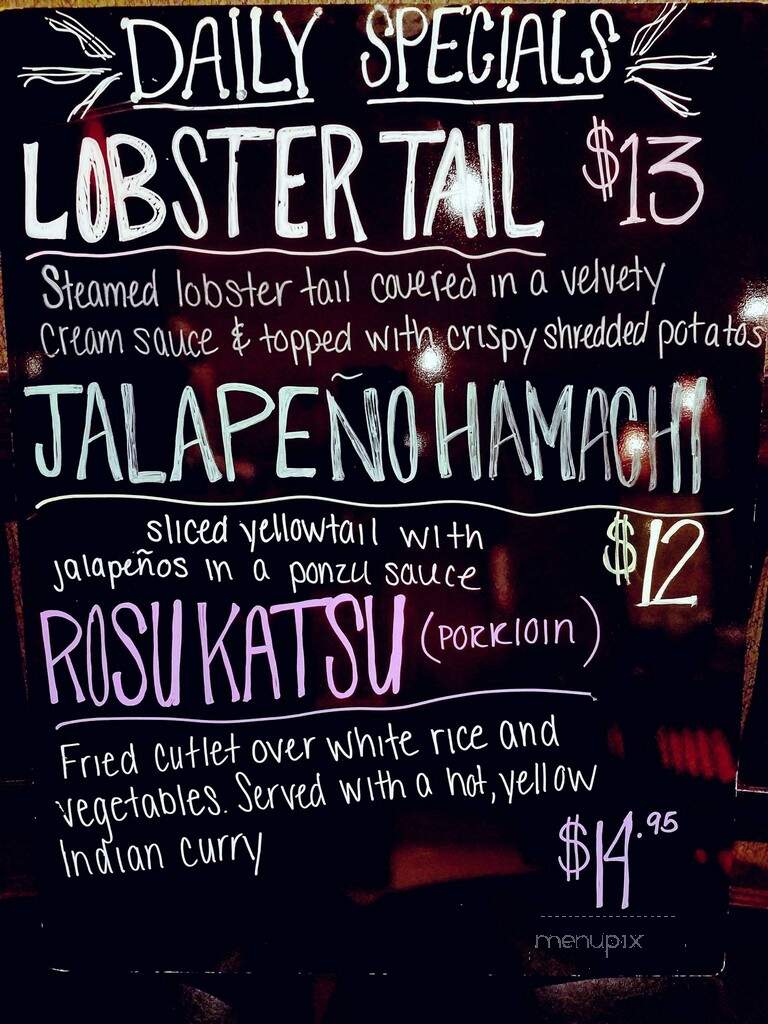 DAILY SPECIALS
LOBSTER TAIL $13
Steamed lobster tail covered in a velvety
cream sauce & topped with crispy shredded potatos
JALAPEÑO HAMACHI
sliced yellowtail with
jalapeños in a ponzu sauce
$12
ROSU KATSU (PORKLOIN)
Fried cutlet over white rice and
vegetables. Served with a hot, yellow
Indian curry
$14.95
menupix